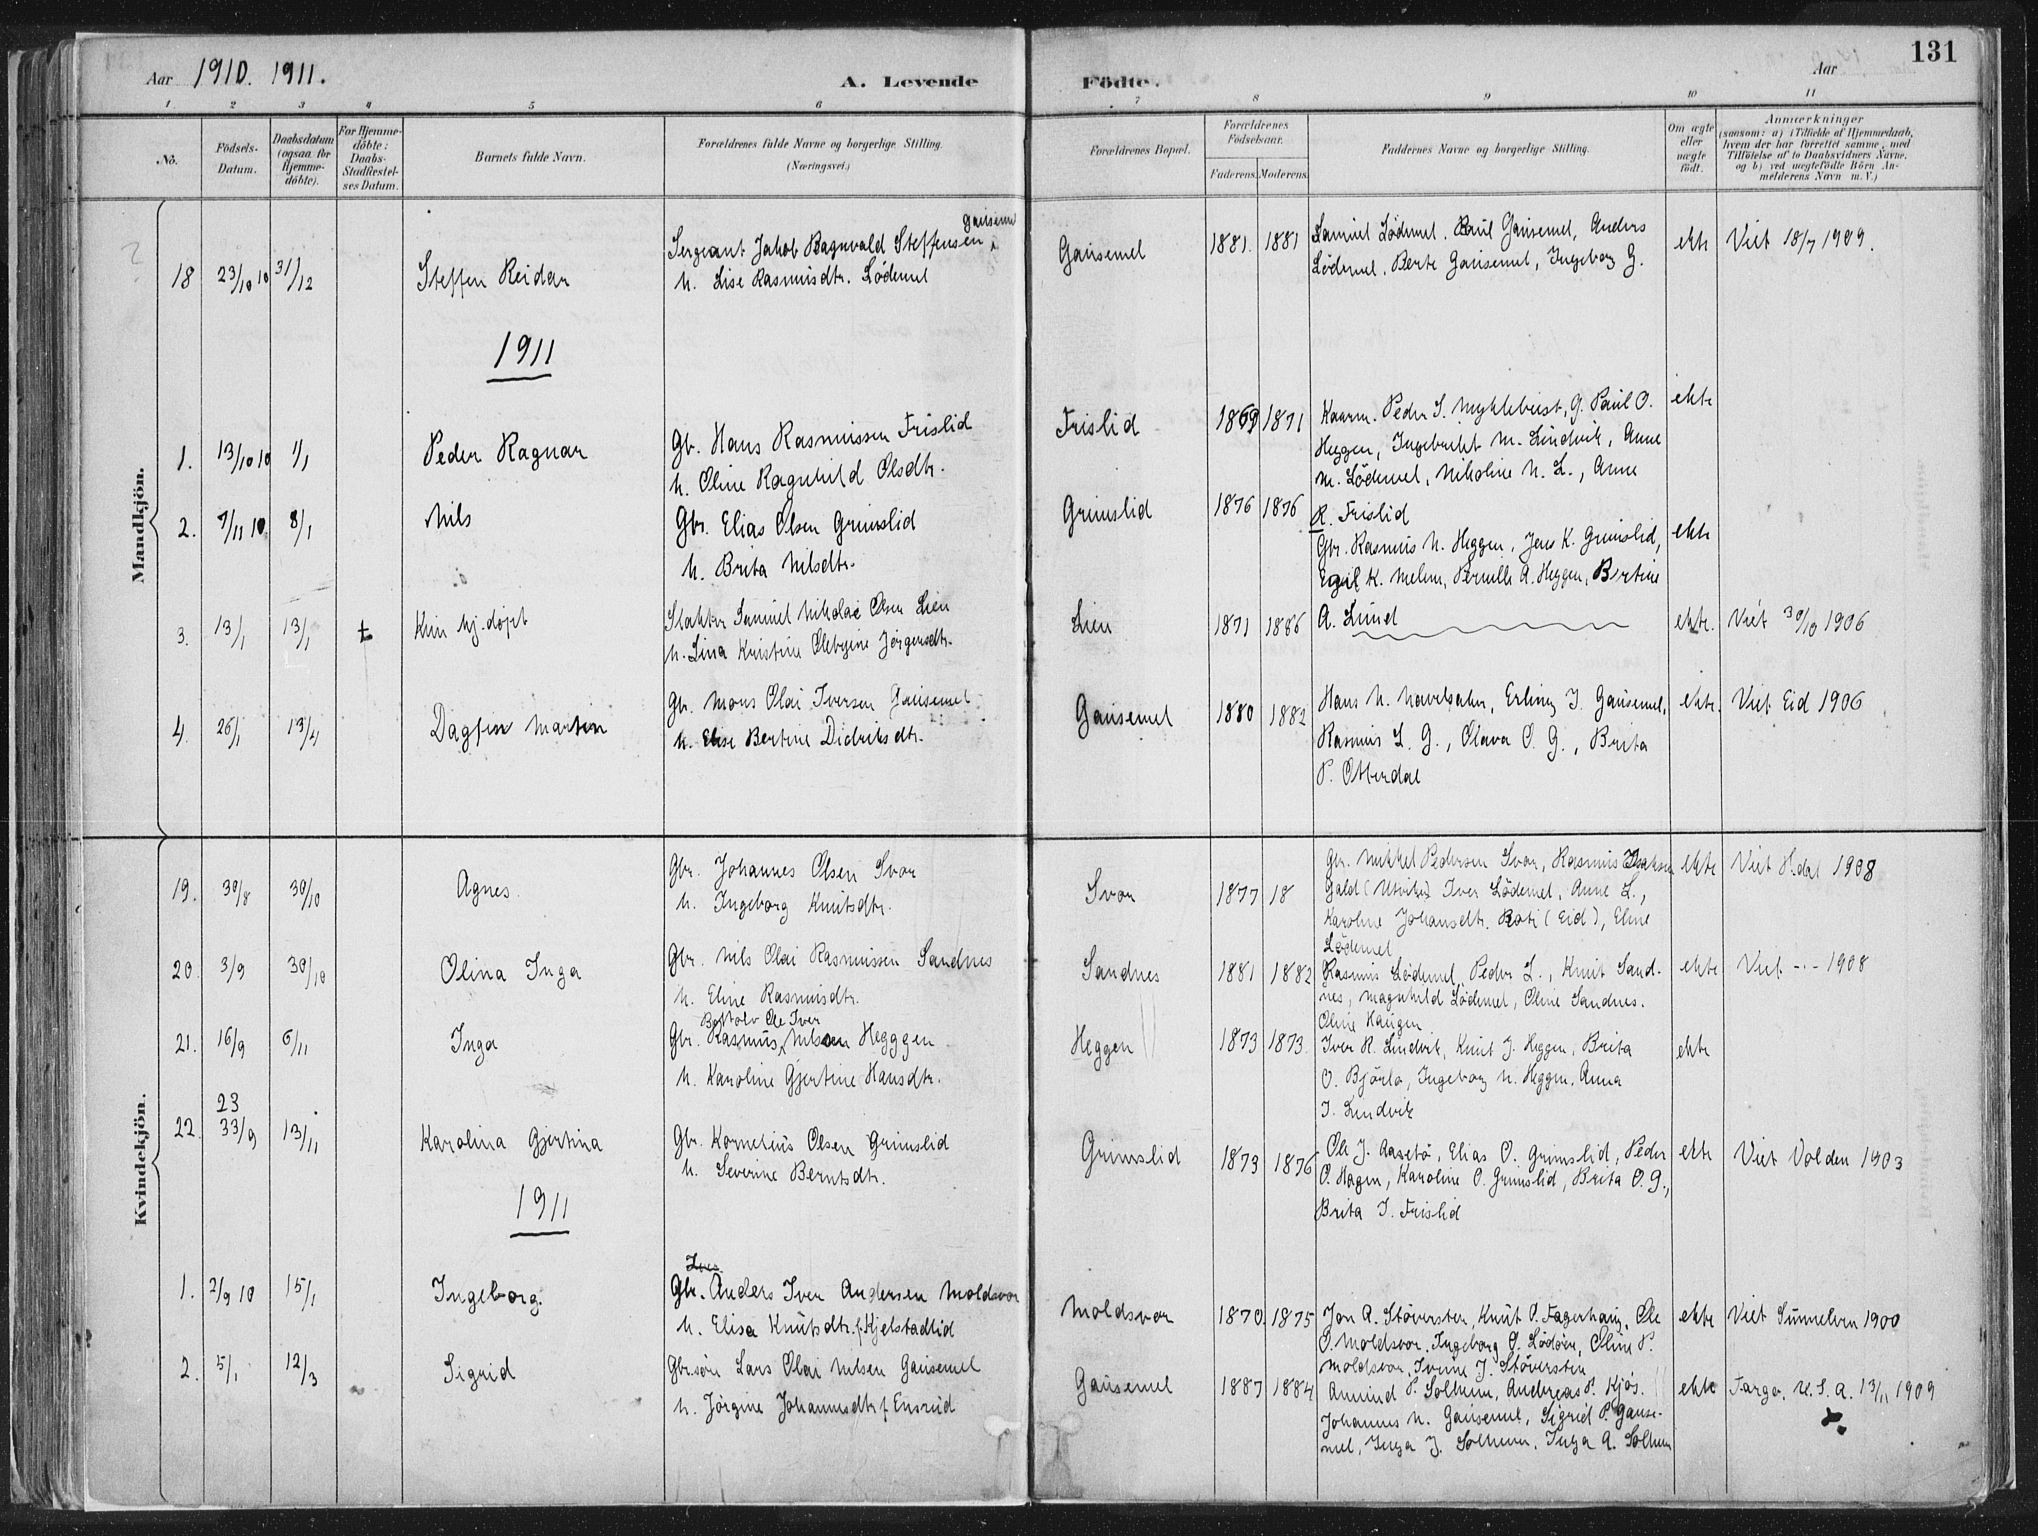 131
Aar 1910. 1911.
A. Levende
Födte.
Aar
1 2 3 4 5 6 7 8 9 10 11
No.
Födsels-
Datum.
Daabsdatum
(ogsaa for
Hjemme-
döbte).
For Hjemme-
döbte:
Daabs-
Stadfæstel-
ses Datum.
Barnets fulde Navn.
Forældrenes fulde Navne og borgerlige Stilling.
(Næringsvei.)
Forældrenes Bopæl.
Forældrenes
Födselsaar.
Faderens. Moderens.
Faddernes Navne og borgerlige Stilling.
Om ægte
eller
uægte
födt.
Anmærkninger
(saasom: a) i Tilfælde af Hjemmedaab,
hvem der har forrettet samme, med
Tilföielse af to Daabsvidners Navne,
og b) ved uegtefödte Börn An-
melderens Navn m. V.)
Mandkjön.
18 23/10 10 31/12 Steffen Reidar
Gausemel
Sergeant Jakob Ragnvald Steffensen
h. Lise Rasmusdtr. Lödemel
Gausemel 1881. 1881
Samuel Lödemel. Paul Gausemel, Anders
Lödemel, Berte Gausemel, Ingeborg G.
ekte Viet 18/7 1909.
1911
1. 13/10 10 1/1 Peder Ragnar
Gb. Hans Rasmussen Frislid
h. Oline Ragnhild Olsdtr.
Frislid 1869 1871
Kaarm. Peder S. Myklebust, G. Paul O.
Heggen, Ingebrikt M. Lindvik, Anne
M. Lödemel, Nikoline N. L., Anne
R. Frislid
ekte
2. 7/11 10 8/1 Nils
Gbr. Elias Olsen Grimslid
h. Brita Nilsdtr.
Grimslid 1876 1876
Gbr. Rasmus N. Heggen, Jens K. Grimslid,
K. Melem, Pernille A. Heggen, Bertine
A. Lund
ekte
3. 13/1 13/1 Kun hj. döpt
Samuel Nikolai Olsen Lien
h. Lina Kristine Jörgensdtr.
Lien 1871 1886 ekte. Viet 30/10 1906
4. 26/1 13/4 Dagfin Martin
Gbr. Mons Olai Iversen Gausemel
h. Else Bertine Didriksdtr.
Gausemel 1880 1882
Hans N. Navelsaker, Erling I. Gausemel,
Rasmus L. G., Olava O. G., Brita
P. Otterdal
ekte. Viet Eid 1906
Kvindekjön.
19. 30/8 30/10 Agnes.
Gbr. Johannes Olsen Svor
h. Ingeborg Knutsdtr.
Svor 1877 18
Gbr. Mikkel Pedersen Svor, Rasmus Isaksen
Gald (Utviken) Iver Lödemel, Anne L.,
Karoline Johansdtr. (Eid), Eline
Lödemel
ekte Viet H.dal 1908
20. 3/9 30/10 Olina Inga
Gbr. Nils Olai Rasmussen Sandnes
h. Eline Rasmusdtr.
Sandnes 1881 1882
Rasmus Lödemel, Peder L., Knut Sand-
nes, Magnhild Lödemel, Oline Sandnes.
Oline Haugen
ekte Viet -"- 1908
21. 16/9 6/11 Inga
Botolv Ole Iver
Gbr. Rasmus Nilsen Hegggen
h. Karoline Gjertine Hansdtr.
Heggen 1873 1873
Iver R. Lindvik, Knut J. Heggen, Brita
O. Björlo, Ingeborg N. Heggen, Anna
I. Lindvik
ekte
23
22. 33/9 13/11 Karolina Gjertina
Gbr. Kornelius Olsen Grimslid
h. Severine Berntsdtr.
Grimslid 1873 1876
Ole J. Aasebö, Elias O. Grimslid, Peder
O. Hagen, Karoline O. Grimslid, Brita O. G.,
Brita I. Frislid
ekte Viet Volden 1903
1911
1. 2/9 10 15/1 Ingeborg.
Iver
Gbr. Anders Iver Andersen Moldsvor
h. Elisa Knutsdtr. f. Kjelstadlid
Moldsvor 1870. 1875
Jon R. Stöversten, Knut O. Fagerhaug, Ole
O. Moldsvor, Ingeborg O. Lödöen, Oline P.
Moldsvor, Iverine J. Stöversten
ekte Viet Sunnelven 1900
2. 5/1 12/3 Sigrid
Gbr.sön Lars Olai Nilsen Gausemel
h. Jörgine Johannesdtr. f. Ensrud
Gausemel 1887 1884
Amund P. Solheim, Andreas P. Kjös.
Johannes N. Gausemel, Sigrid P. Gause-
mel, Inga J. Solheim, Inga A. Solheim
ekte Fargo. U. S. A. 13/11 1909